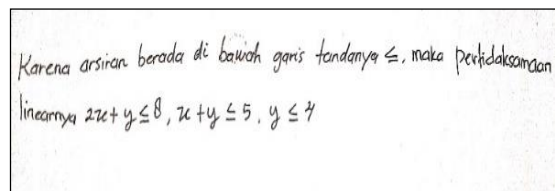 Karena arsiran berada di bawah garis tandanya ≤, maka pertidaksamaan
linearnya 2x + y ≤ 8, x + y ≤ 5, y ≤ 4